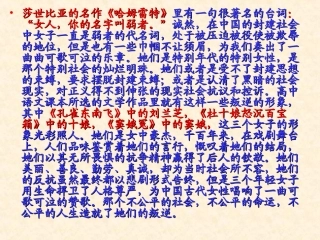 • 莎世比亚的名作《哈姆雷特》里有一句很著名的台词：
“女人，你的名字叫弱者。”诚然，在中国的封建社会
中女子一直是弱者的代名词，处于被压迫被役使被欺辱
的地位，但是也有一些巾帼不让须眉，为我们奏出了一
曲曲可歌可泣的乐章。她们是特别的年代的特别女性，是
那个特别社会的灿烂明珠。她们或者是受不了封建思想
的束缚，要求摆脱封建束缚；或者是认清了黑暗的社会
现实，对正义得不到伸张的现实社会就议和控诉。高中
语文课本所选的文学作品里就有这样一些叛逆的形象，
其中《孔雀东南飞》中的刘兰芝，《杜十娘怒沉百宝
箱》中的十娘，《窦娥冤》中的窦娥。这三个女子的形
象光彩照人，她们是女中豪杰。千百年来，在戏剧舞台
上，人们品味鉴赏着她们的言行，慨叹着她们的结局，
她们以其无所畏惧的抗争精神赢得了后人的钦敬。她们
美丽、善良、勤劳、真诚，却为当时社会所不容，她们
的反抗虽然最终都以悲剧形式告终，但是三个年轻女子
用生命捍卫了人格尊严，为中国古代女性唱响了一曲可
歌可泣的赞歌。那个不公平的社会，不公平的命运，不
公平的人生遭就了她们的叛逆。